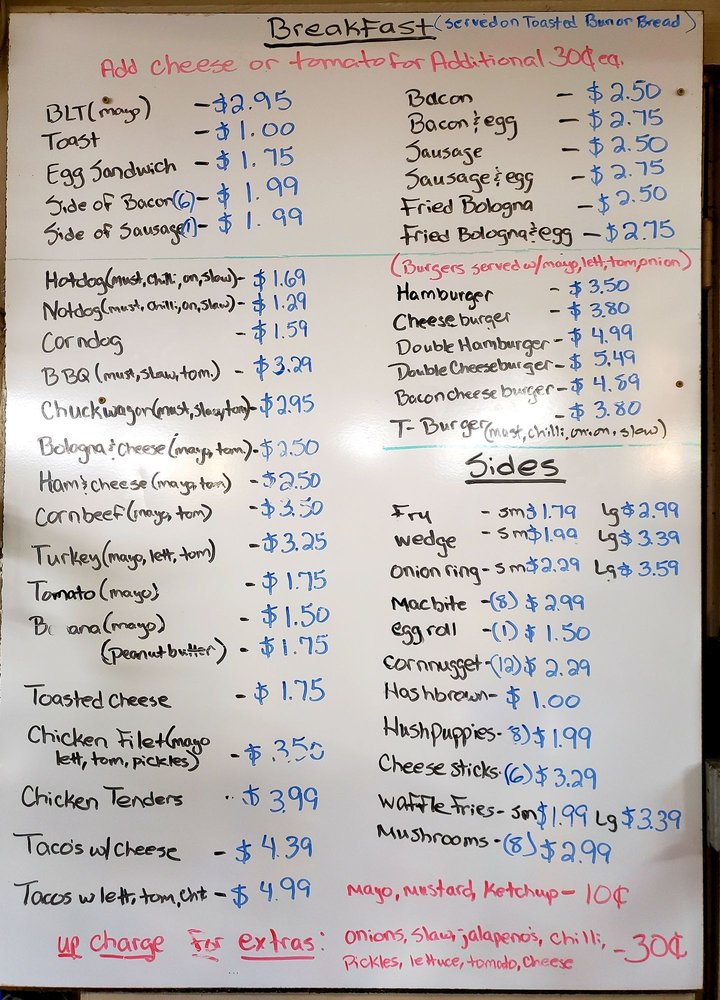 Breakfast (served on Toasted Bun or Bread)
Add cheese or tomato for Additional 30¢ ea.
BLT (mayo) - $2.95
Toast - $1.00
Egg Sandwich - $1.75
Side of Bacon (6) - $1.99
Side of Sausage (1) - $1.99
Bacon - $2.50
Bacon & egg - $2.75
Sausage - $2.50
Sausage & egg - $2.75
Fried Bologna - $2.50
Fried Bologna & egg - $2.75
Hotdog (must, chilli, on, slaw) - $1.69
Notdog (must, chilli, on, slaw) - $1.29
Corndog - $1.59
BBQ (must, slaw, tom.) - $3.29
Chuckwagon (must, slaw, tom) - $2.95
Bologna & cheese (mayo, tom) - $2.50
Ham & cheese (mayo, tom) - $2.50
Cornbeef (mayo, tom) - $3.50
Turkey (mayo, lett, tom) - $3.25
Tomato (mayo) - $1.75
B ana (mayo) - $1.50
(peanut butter) - $1.75
Toasted Cheese - $1.75
Chicken Filet (mayo
lett, tom, pickles) - $3.50
Chicken Tenders - $3.99
Taco's w/ cheese - $4.39
Tacos w lett, tom, cht - $4.99
(Burgers served w/ mayo, lett, tom, onion)
Hamburger - $3.50
Cheeseburger - $3.80
Double Hamburger - $4.99
Double Cheeseburger - $5.49
Bacon cheese burger - $4.89
T-Burger (must, chilli, onion, slaw) - $3.80
Sides
Fry - sm $1.79 Lg $2.99
wedge - sm $1.99 Lg $3.39
onion ring - sm $2.29 Lg $3.59
Macbite - (8) $2.99
egg roll - (1) $1.50
cornnugget - (12) $2.29
Hashbrown - $1.00
Hushpuppies - 8) $1.99
Cheese sticks - (6) $3.29
Waffle Fries - sm $1.99 Lg $3.39
Mushrooms - (8) $2.99
Mayo, Mustard, Ketchup - 10¢
up charge for extras: onions, slaw, jalapeno's, chilli, - 30¢
Pickles, lettuce, tomato, cheese